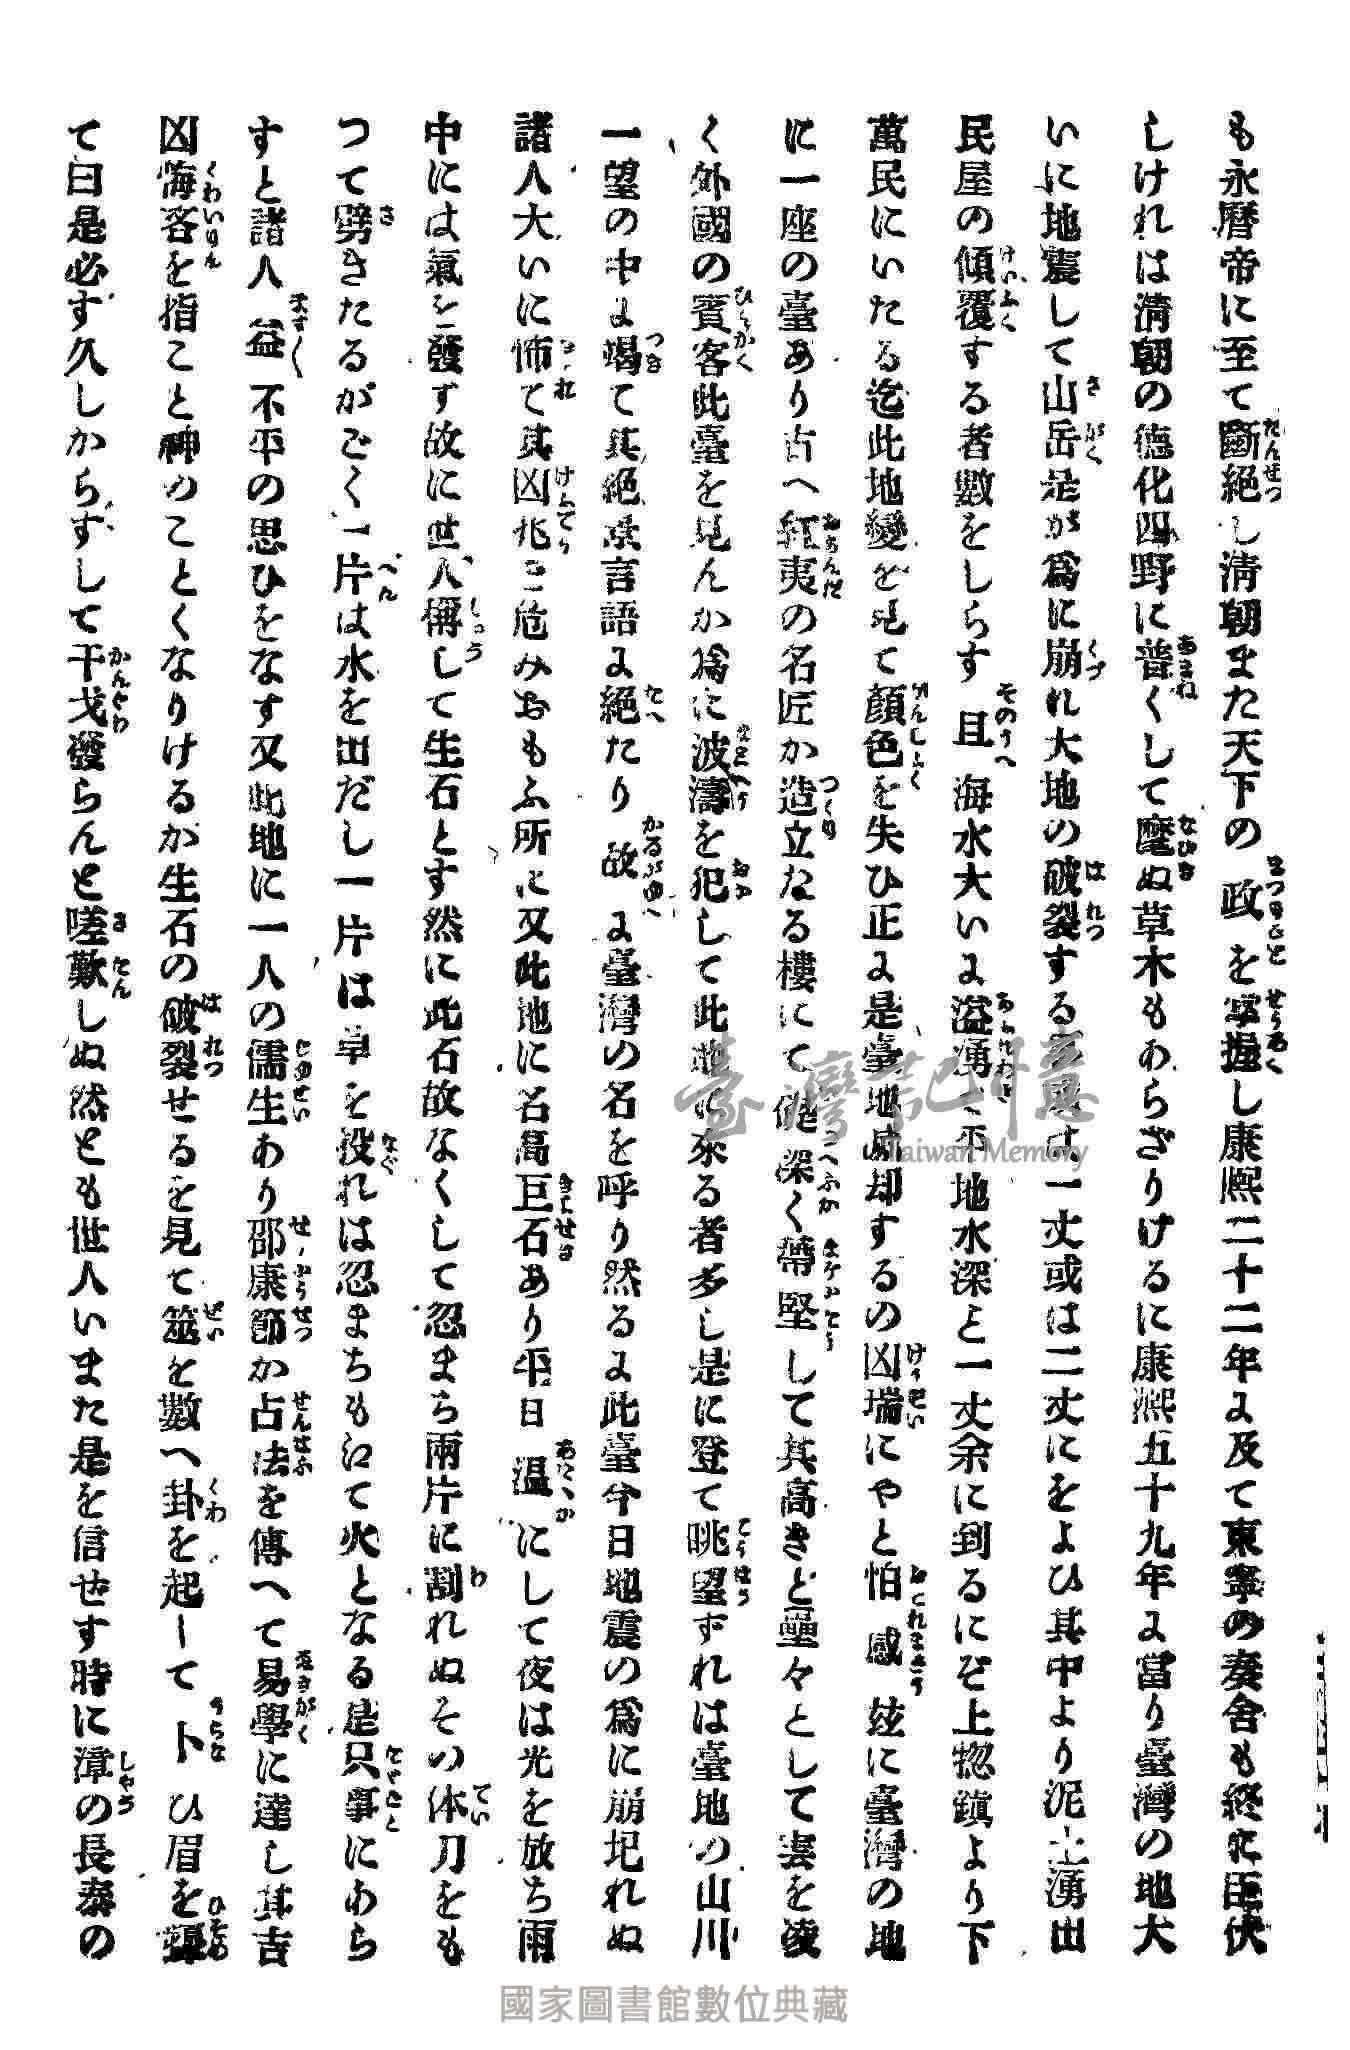 も永曆帝に至て斷絕し淸朝また天下の政を掌握し康熙二十二年に及て東寧の奏舍も終に臣伏
しけれは淸朝の德化四野に普くして靡ぬ草木もあらざりけるに康熙五十九年に當り臺灣の地大
いに地震して山岳是が爲に崩れ大地の破裂する は一丈或は二丈にをよひ其中より泥土湧出
民屋の傾覆する者數をしらす且海水大いに溢湧 平地水深と一丈余に到るにぞ上惣鎭より下
萬民にいたる迄此地變を見て顏色を失ひ正に是臺地 却するの凶瑞にやと怕感玆に臺灣の地
に一座の臺あり古へ紅夷の名匠か造立なる樓にて 深く帶堅して其高きと壘々として雲を凌
く外國の賓客此臺を見んか爲に波濤を犯して此地に來る者多し是に登て眺望すれは臺地の山川
一望の中に竭て其絕景言語に絕たり故に臺灣の名を呼り然るに此臺今日地震の爲に崩圮れぬ
諸人大いに怖て其凶兆 危みおもふ所に又此地に名高巨石あり平日溫にして夜は光を放ち雨
中には氣を發ず故に世人 して生石とす然に此石故なくして忽まち兩片に割れぬその体刀をも
つて劈きたるがごく一片は水を出だし一片は草を投れは忽まちもえて火となる是只事にあら
すと諸人益不平の思ひをなす又此地に一人の儒生あり邵康節か占法を傳へて易學に達し其吉
凶悔吝を指こと神のことくなりけるが生石の破裂せるを見て筮を數へ卦を起して卜ひ眉を顰
て曰是必す久しからすして干戈發らんと嗟歎しぬ然とも世人いまた是を信せす時に漳の長泰の
臺灣記憶
Taiwan Memory
國家圖書館數位典藏